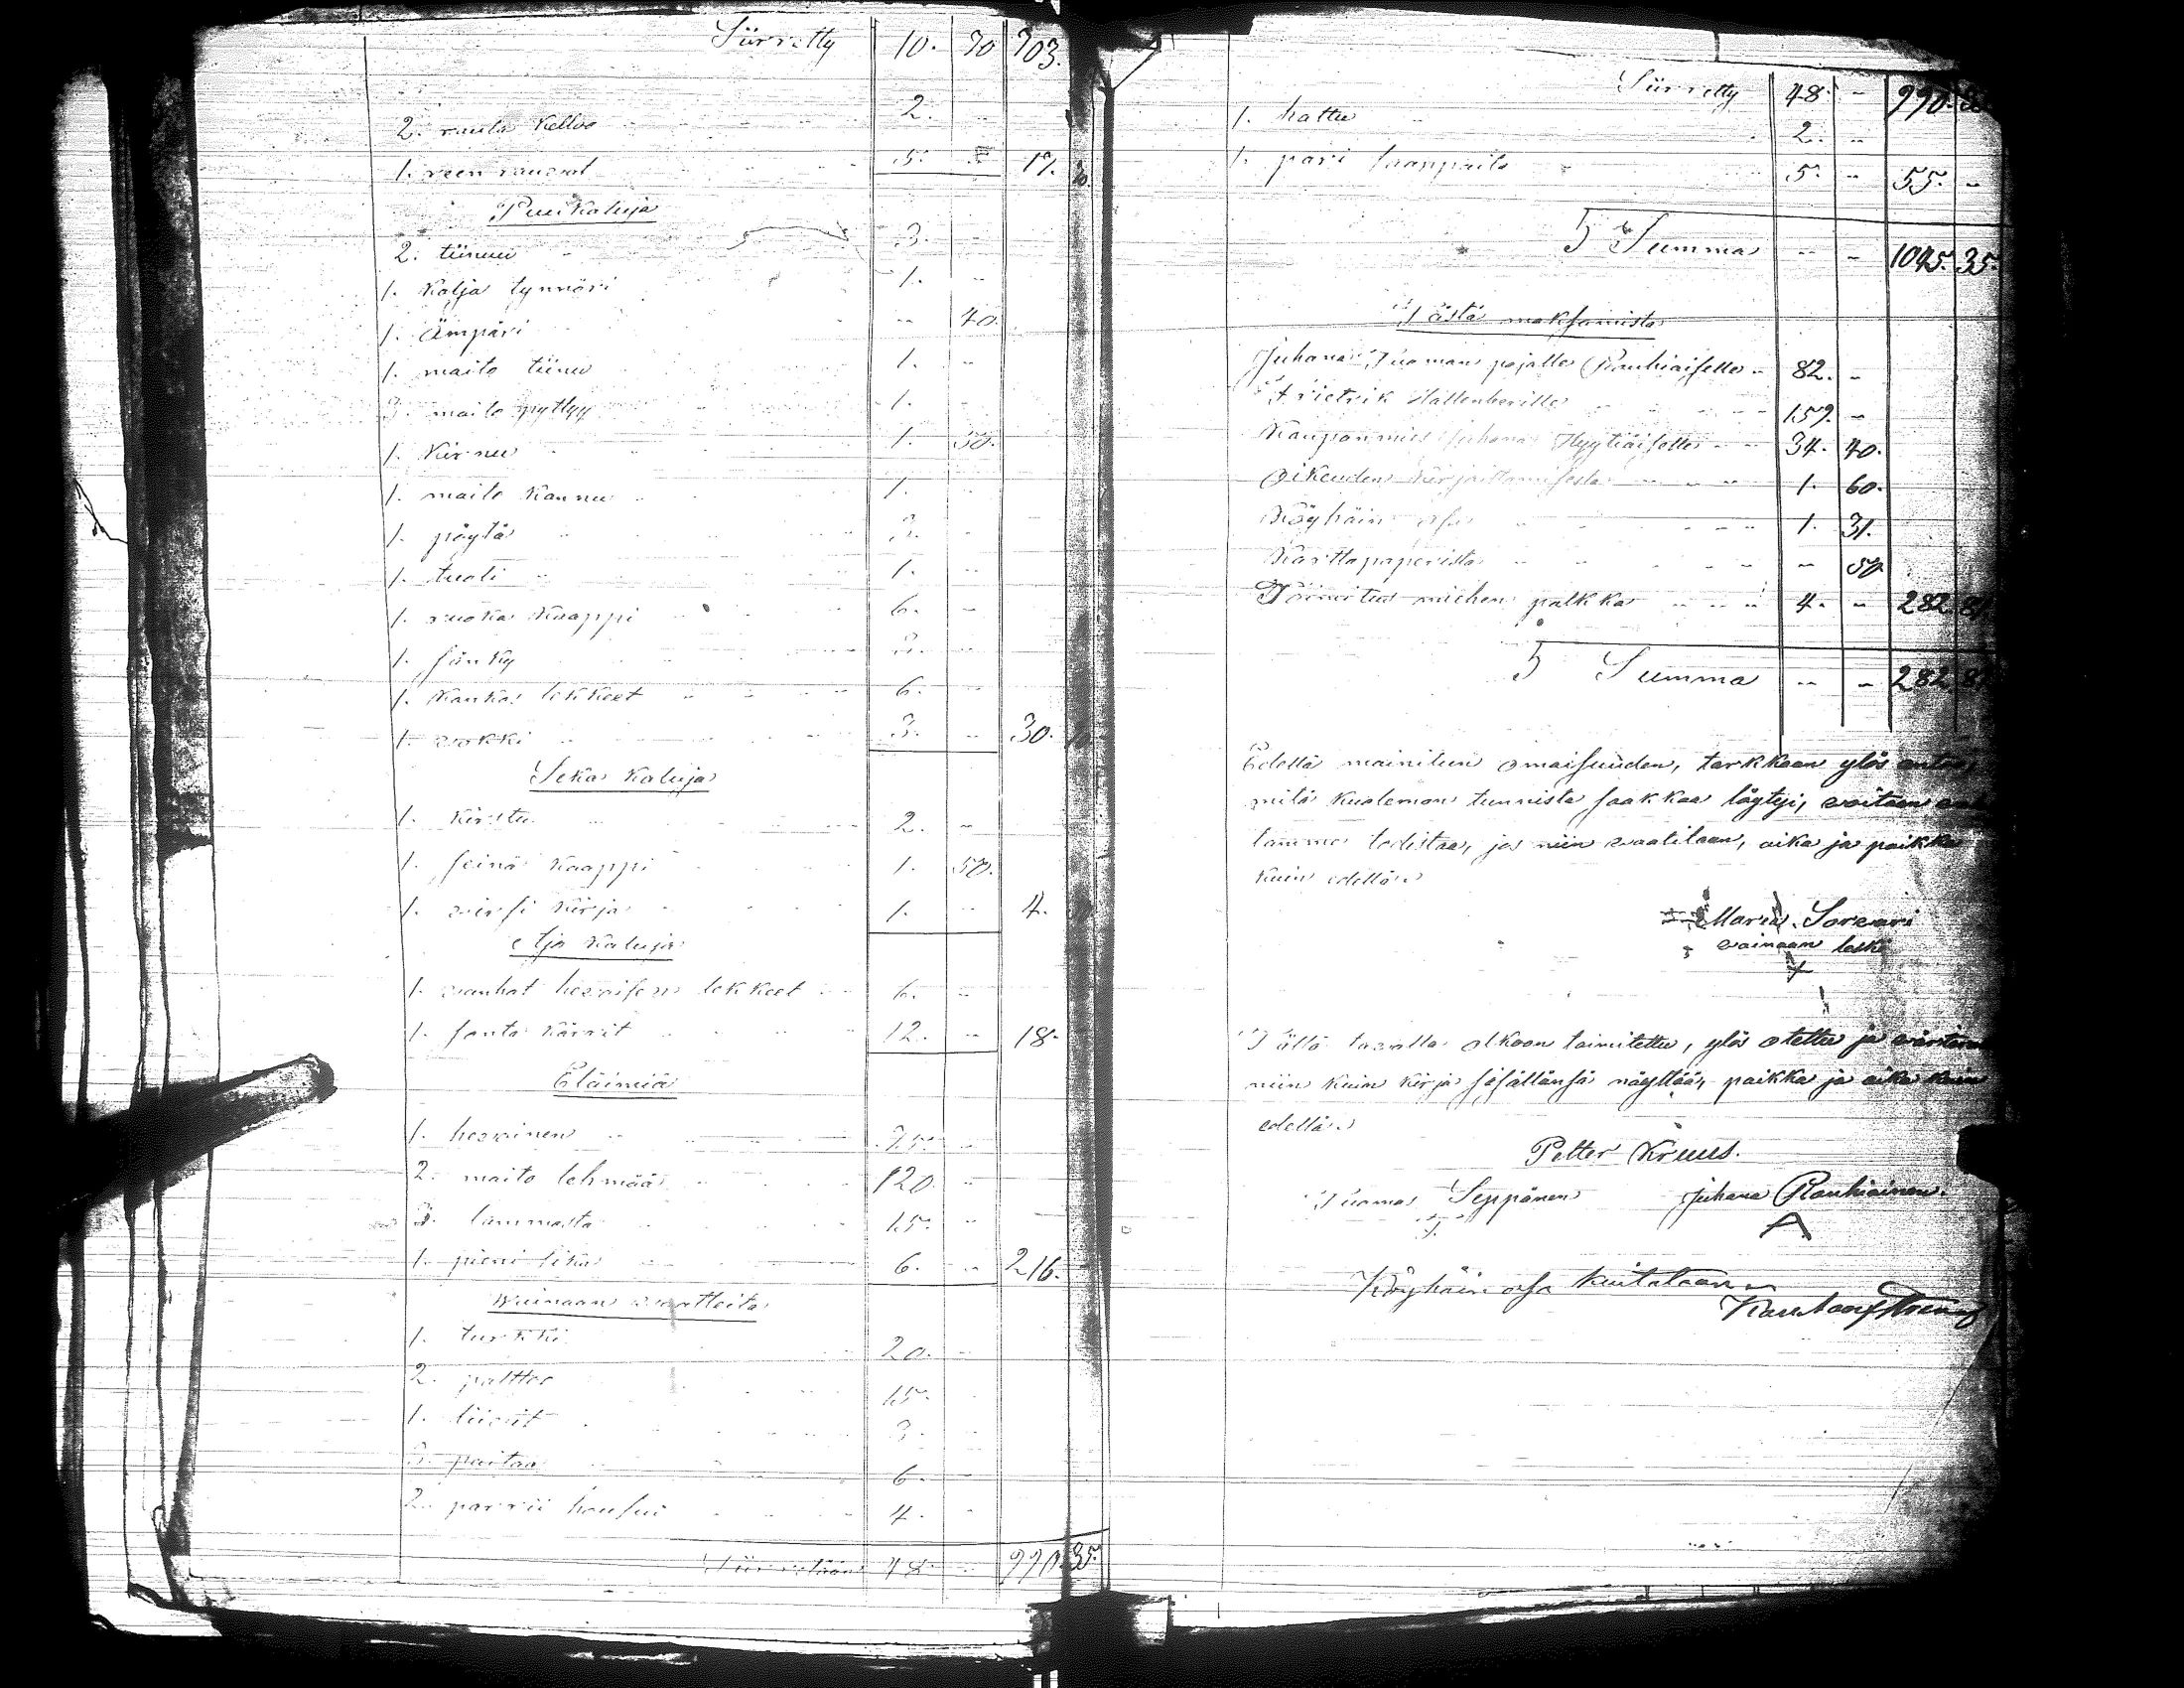 Siirretty 10. 70 703.
2. rauta kelloo 2. "
1. reen raudat 5. " 17. 70.
Puukaluja
2. tiinuu 3.
1. Kalja tynnöri 1. "
1. Ämpäri " 40.
1. maito tiinu 1. "
3. maito pyttyy 1. "
1. Kirnu 1. 50.
1. maito Kannu 1. "
1. pöytä 3. "
1. tuoli 1. "
1. ruoka Kaappi 6. "
1. sänky "
1. Kankas lekkeet 6. "
1. wokki 3. " 30.
Seka Kaluja
1. Kirstu 2. "
1. seinä Kaappi 1. 50.
1. wirsi Kirja 1. " 4.
Ajo Kaluja
1. wanhat hewoisen lekkeet 6. "
1. Kärrit 12. " 18.
Eläimiä
1. hewoinen 75. "
2. maito lehmää 120. "
3. lammasta 15. "
1. pieni sika 6. " 216.
Wainaan waatteita
1. turkki 20. "
2. palttoo 15.
1. liivit 3. "
3. paitaa 6. "
2. parrii housui 4. "
Siirretään 48. " 990. 35.
Siirretty 48. " 990.
1. hattu 2. "
1. pari saappaita 5. " 55. "
Summa " " 1045. 35.
Tästä maksamista
Juhana Tuoman pojalle Rauhiaiselle 82. "
Frietrik Hallenberille 159. "
Kaupanmies Juhana Hyytiäiselle 34. 40.
Oikeuden Kirjoittamisesta 1. 60.
Köyhäin osa 1. 31.
Karttapaperista " 50
Toimitus miehen palkka 4. " 282. 81
Summa " " 282. 81
Edellä mainitun omaisuuden, tarkkaan ylös
mitä kuoleman tunnista saakkaa löytyi, woitaan
tamme todistaa, jos niin waatitaan, aika ja paikka
kuin edellä.
Maria Sorwari
wainaan leski
Tällä tawalla olkoon toimitettu, ylös otettu ja
niin kuin kirja sisällänsä näyttää, paikka ja aika kuin
edellä.
Petter Kruus.
Tuomas Seppänen Juhana Rauhiainen.
Köyhäin osa kuitataan